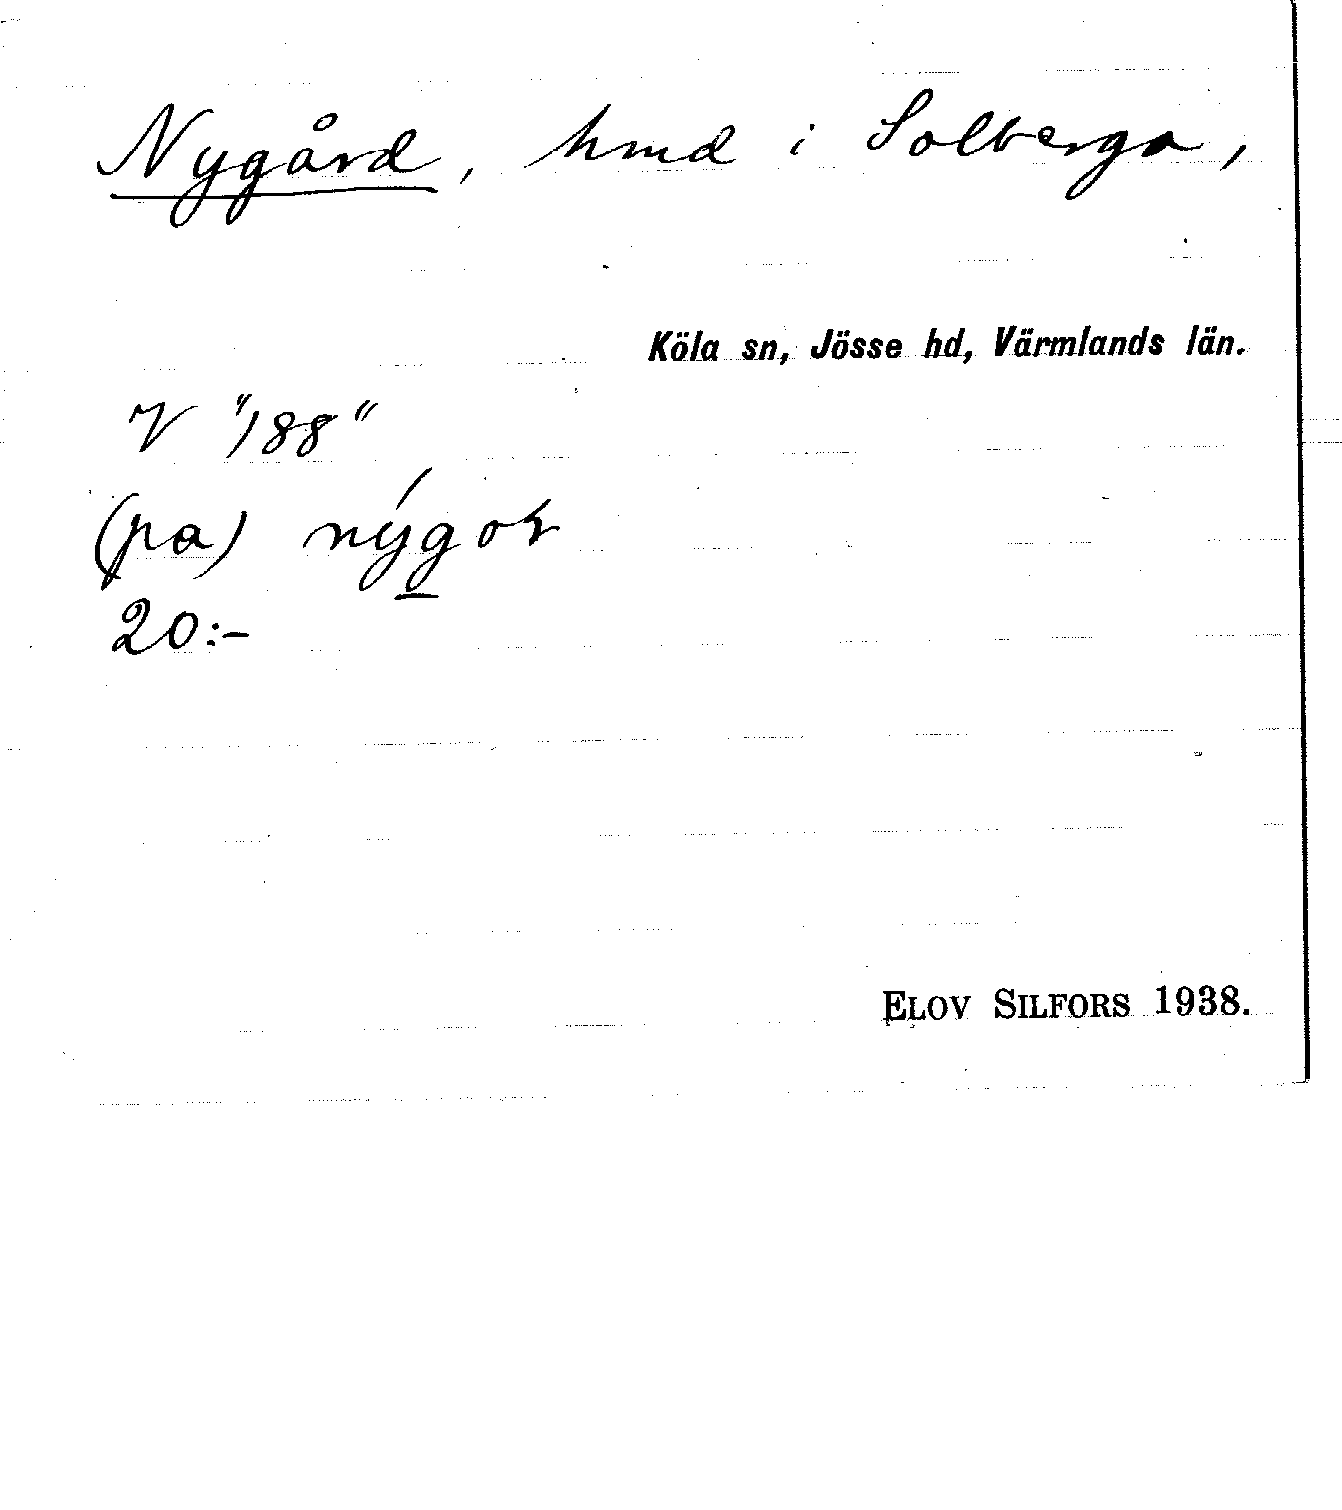 Nygård, hmd i Solberga,
Köla sn, Jösse hd, Värmlands län.
V "188"
(pa) nýgoṙ
20:-
ELOV SILFORS 1938.